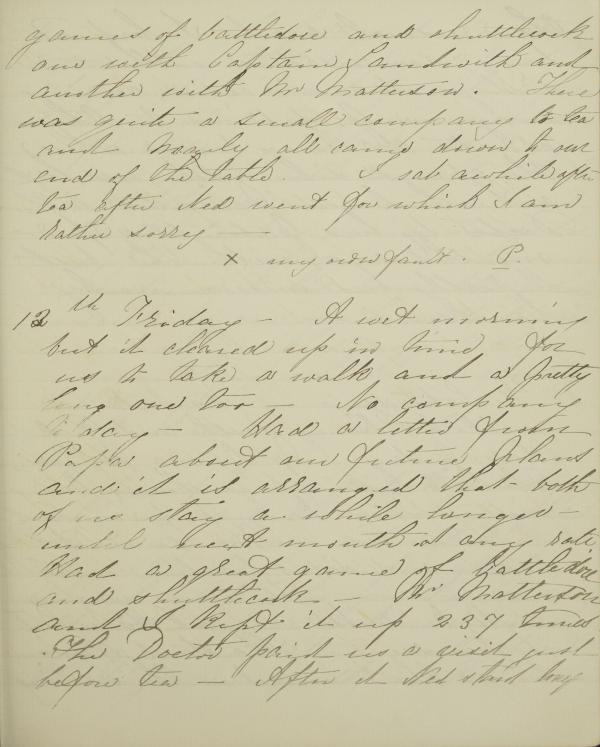 games of battledore and shuttlecock
one with Captain Sandwith and
another with Mr Matterson. There
was quite a small company to tea
and nearly all came down to our
end of the table. I sat awhile after
tea after Ned went for which I am
rather sorry —
x my own fault. P.
12th Friday — A wet morning
but it cleared up in time for
us to take a walk and a pretty
long one too — No company
to day — Had a letter from
Papa about our future plans
and it is arranged that both
of us stay a while longer —
until next month at any rate
Had a great game of battledore
and shuttlecock — Mr Matterson
and I kept it up 237 times
The Doctor paid us a visit just
before tea — After it Ned staid long